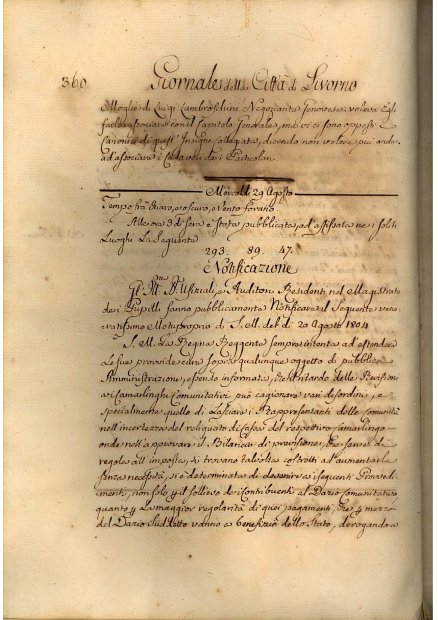 360 Giornale della Città di Livorno
Moglie di Luigi Lambroschini Negoziante Genovese voleva Egli
farle associare con il Capitolo Generale, ma vi si sono opposti i
Canonici di quest' Insigne Collegiata, dicendo non volere più andare
ad associare i Cadaveri de i Particolari.
Mercoldì 29 Agosto
Tempo frà chiaro, e oscuro, e vento forano.
Alle ore 3 di sera è stata pubblicata, ad affissata ne i soliti
Luoghi La Sequente
293. 89. 47.
Notificazione
Gl' Ill.mi SS. Ufiziali, e Auditori Residenti nel Magistrato
de i Pupilli fanno pubblicamente Notificare il Seguente vene-
ratissimo Motuproprio di S. M. del dì 20 Agosto 1804
S. M. La Regina Reggente sempre intenta ad estendere
Le sue provvide cure sopra qualunque oggetto di pubblica
Amministrazione, essendo informata, che il ritardo delle Revisioni
ai Camarlinghi Comunitativi può cagionare vari disordini, e
specialmente quello di Lasciare i Rappresentanti delle Comunità
nell' incertezza del reliquato di cassa del respettivo Camarlingo
onde nell' approvare il Bilancio di previsione, che serve di
regola all' imposta, si trovano talvolta costretti ad aumentarla
senza necessità, si è determinata di devenire ai seguenti Provvedi-
menti, non solo per il sollievo dei Contribuenti al Dazio Comunitativo
quanto per La maggior regolarità di quei pagamenti, che per mezzo
del Dazio Suddetto vanno a benefizio dello Stato, derogando a